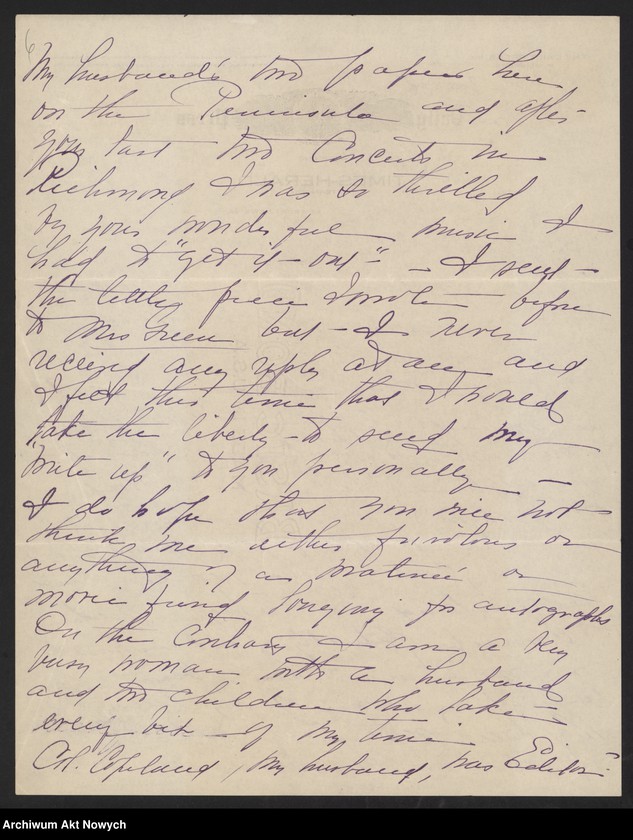 My husband's two papers here
on the Peninsula and after
your last two Concerts in
Richmond I was so thrilled
by your wonderful music I
had to "get it - out" - I sent
the little piece I wrote before
to Mrs Green but - I never
received any reply at all and
I felt this time that I would
take the liberty - to send my
"write up" to you personally -
I do hope that you will not
think me either frivolous or
anything of a matineé or
movie fiend longing for autographs
On the Contrary I am a very
busy woman with a husband
and two children who take
every bit of my time
Col. Copeland, my husband, was Editor
Archiwum Akt Nowych